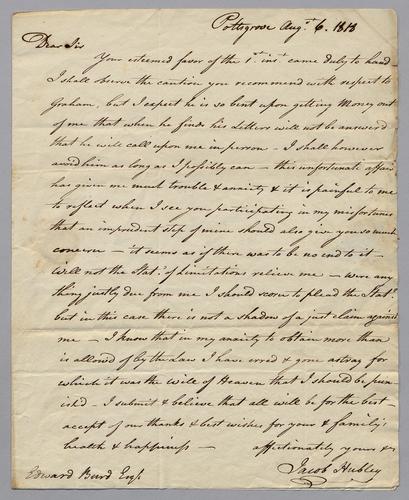 Pottsgrove Augt. 6. 1818
Dear Sir
Your esteemed favor of the 1st. inst. came duly to hand
I shall observe the caution you recommend with respect to
Graham, but I expect he is so bent upon getting Money out
of me that when he finds his Letters will not be answered
that he will call upon me in person – I shall however
avoid him as long as I possibly can – this unfortunate affair
has given me much trouble & anxiety & it is painful to me
to reflect when I see you participating in my misfortunes
that an imprudent step of mine should also give you so much
concern – it seems as if there was to be no end to it –
Will not the Stat. of Limitations relieve me – were any
thing justly due from me I should scorn to plead the Stat.
but in this case there is not a shadow of a just claim against
me – I know that in my anxiety to obtain more than
is allowed of by the Law I have erred & gone astray for
which it was the will of Heaven that I should be pun-
ish'd – I submit & believe that all will be for the best –
accept of our thanks & best wishes for your & family's
health & happiness – affectionately yours &c
Jacob Hubley
Edward Burd Esqr.